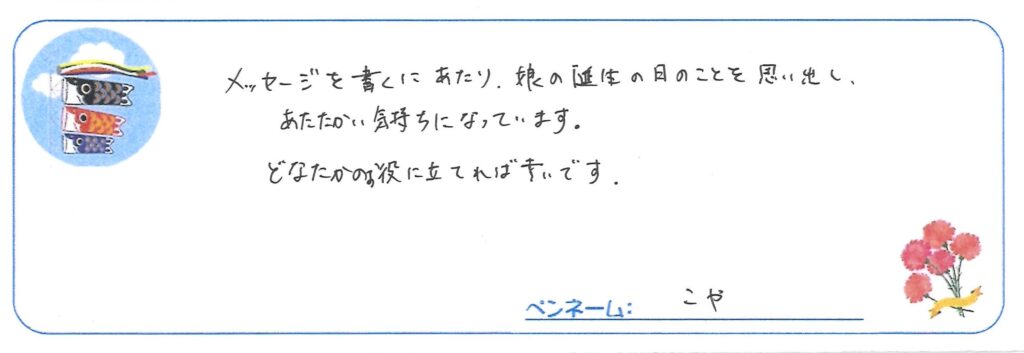 メッセージを書くにあたり、娘の誕生の日のことを思い出し、
あたたかい気持ちになっています。
どなたかのお役に立てれば幸いです.
ペンネーム: こや